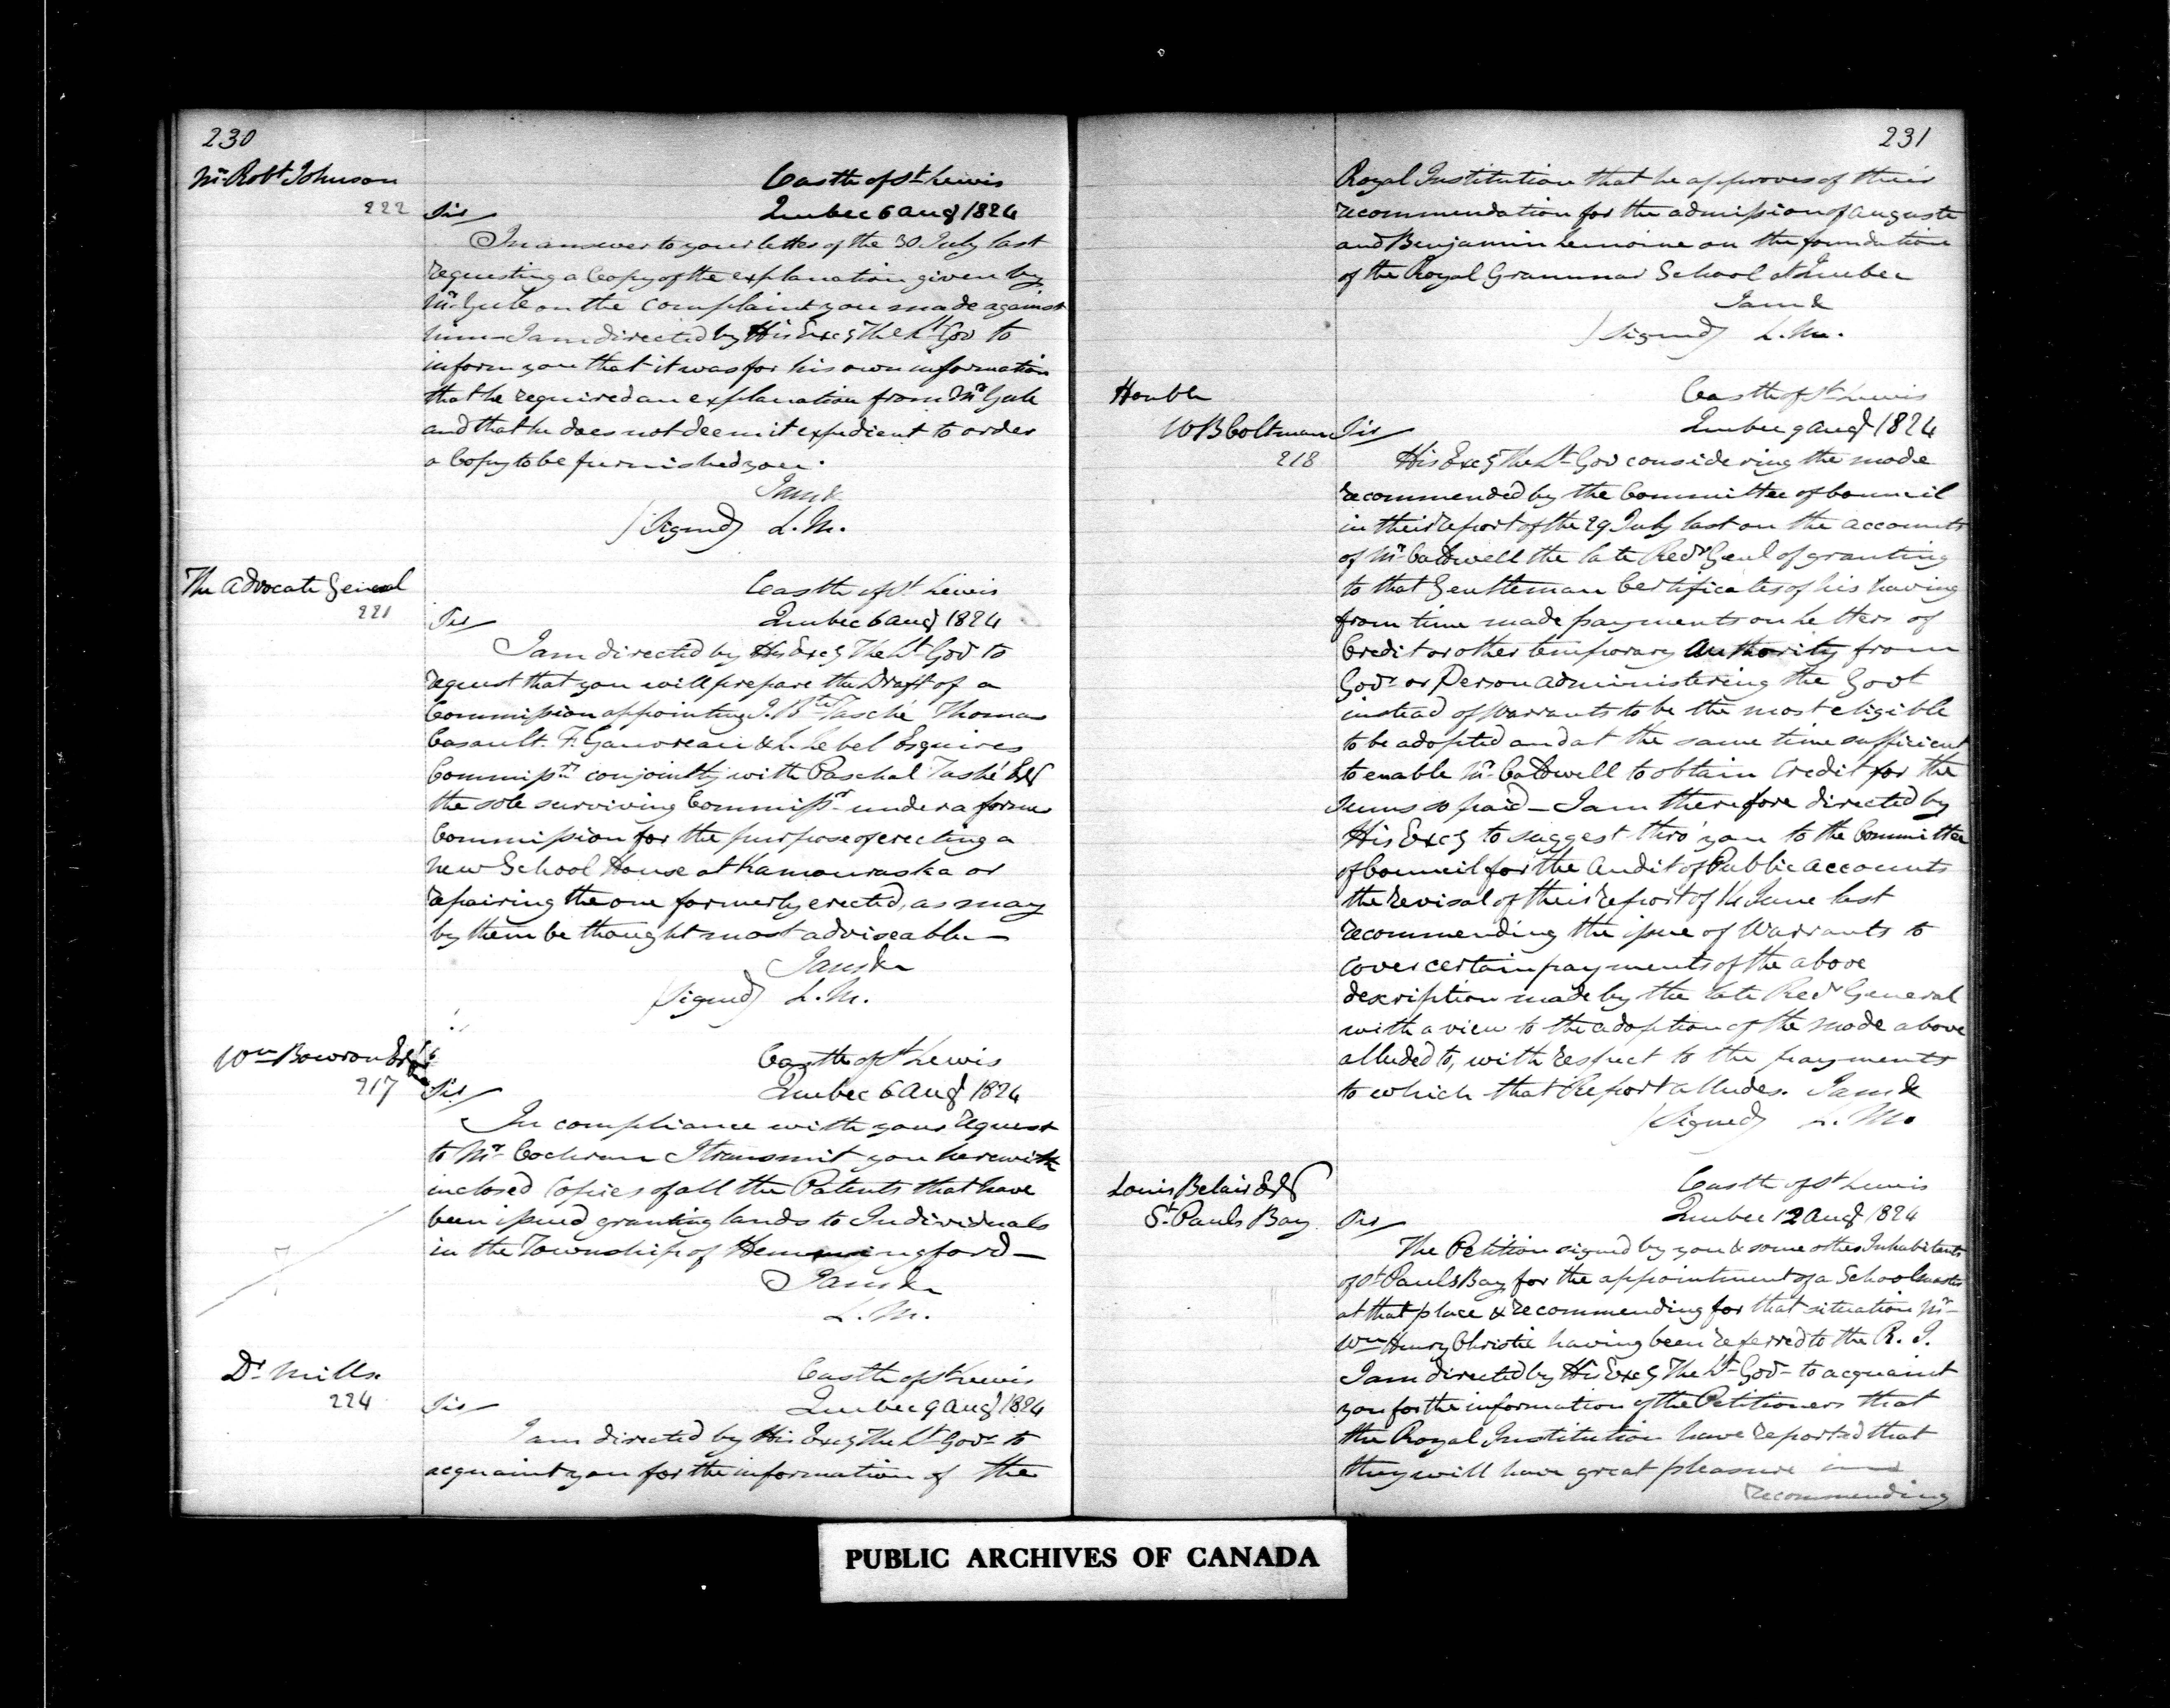 230
Mr Robt Johnson
222
Castle of St Lewis
Quebec 6 Augt 1824
Sir
In answer to your letter of the 30 July last
requesting a Copy of the explanation given by
Mr Gale on the complaint you made against
him I am directed by His Excy The Lt Gov to
inform you that it was for his own information
that he required an explanation from Mr Gale
and that he does not deem it expedient to order
a Copy to be furnished you.
I am &c
(Signed) L. M.
The Advocate General
221
Castle of St Lewis
Quebec 6 Augt 1824
Sir
I am directed by His Excy The Lt Gov to
request that you will prepare the Draft of a
Commission appointing J. Bte Tasché Thomas
Casault. F. Gauvreau & L. Lebel Esquires
Commissrs conjointly with Paschal Tashé Esqr
the sole surviving Commissr under a former
Commission for the purpose of erecting a
new School House at Kamouraska or
repairing the one formerly erected, as may
by them be thought most adviseable—
I am &c
(Signed) L. M.
Wm Bowron Esqr
217
Castle of St Lewis
Quebec 6 Augt 1824
Sir
In compliance with your request
to Mr Cochran I transmit you herewith
inclosed Copies of all the Patents that have
been issued granting lands to Individuals
in the Township of Hemmingford—
I am &c
L. M.
Dr Mills
224
Castle of St Lewis
Quebec 9 Augt 1824
Sir
I am directed by His Excy The Lt Govr to
acquaint you for the information of the
231
Royal Institution that he approves of their
recommendation for the admission of Auguste
and Benjamin Lemoine on the foundation
of the Royal Grammar School at Quebec
I am &
(Signed) L. M.
Honble
W B Coltman
218
Castle of St Lewis
Quebec 9 Augt 1824
Sir
His Excy The Lt Gov considering the mode
recommended by the Committee of Council
in their report of the 29 July last on the accounts
of Mr Caldwell the late Recr Genl of granting
to that Gentleman Certificates of his having
from time made payments on Letters of
Credit or other temporary Authority from
Govr or Person Administering the Govt
instead of Warrants to be the most eligible
to be adopted and at the same time sufficient
to enable Mr Caldwell to obtain Credit for the
sums so paid — I am therefore directed by
His Excy to suggest thro' you to the Committee
of Council for the Audit of Public Accounts
the revisal of their report of 14 June last
recommending the issue of Warrants to
cover certain payments of the above
description made by the late Recr General
with a view to the adoption of the mode above
alluded to, with respect to the payments
to which that Report alludes. I am &
(Signed) L. M.
Louis Belair Esqr
St Pauls Bay
Castle of St Lewis
Quebec 12 Augt 1824
Sir
The Petition signed by you & some other Inhabitants
of St Pauls Bay for the appointment of a Schoolmaster
at that place & recommending for that situation Mr
Wm Henry Christie having been referred to the R. I.
I am directed by His Excy The Lt Govr to acquaint
you for the information of the Petitioners that
the Royal Institution have reported that
they will have great pleasure in
recommending
PUBLIC ARCHIVES OF CANADA